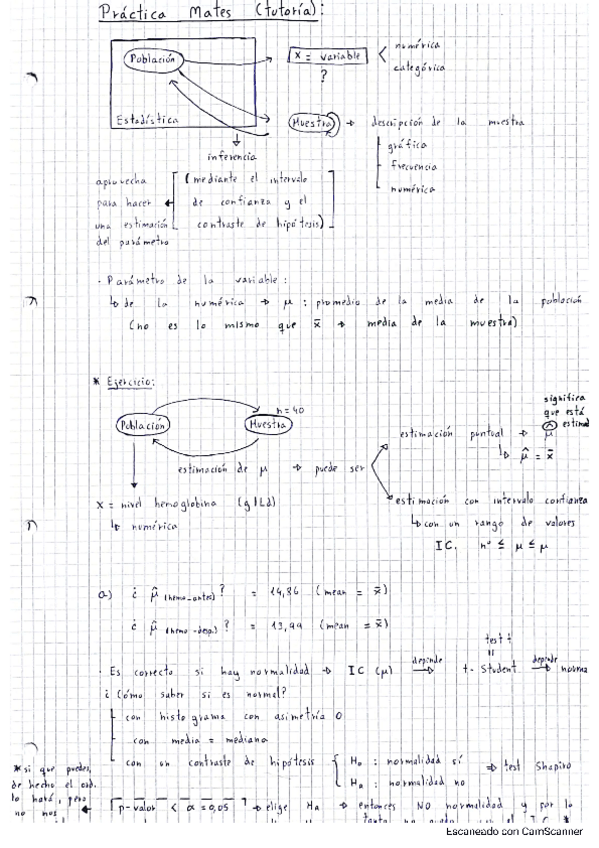 Práctica Mates (tutoría):
Población
x = variable
?
numérica
categórica
Estadística
Muestra → descripción de la muestra
gráfica
frecuencia
numérica
inferencia
aprovecha
para hacer
una estimación
del parámetro
(mediante el intervalo
de confianza y el
contraste de hipótesis)
- Parámetro de la variable:
↳ de la numérica → μ: promedio de la media de la población
(no es lo mismo que x̄ → media de la muestra)
* Ejercicio:
Población
Muestra
n=40
estimación de μ → puede ser
estimación puntual → μ̂
↳ μ̂ = x̄
significa
que está
estimación con intervalo confianza
↳ con un rango de valores
IC. nº ≤ μ ≤ μ
x = nivel hemoglobina (g/Ld)
↳ numérica
a) ¿ μ̂ (hemo-antes)? = 14,86 (mean = x̄)
¿ μ̂ (hemo-desp.)? = 13,99 (mean = x̄)
test t
- Es correcto si hay normalidad → IC (μ) depende t-Student depende
¿Cómo saber si es normal?
con histograma con asimetría 0
con media = mediana
con un contraste de hipótesis
H₀ : normalidad sí
Hₐ : normalidad no
⇒ test Shapiro
* si que puedes,
de hecho el ord.
lo hará, pero
no nos
p-valor < α = 0,05 → elige Hₐ → entonces NO normalidad y por lo
Escaneado con CamScanner